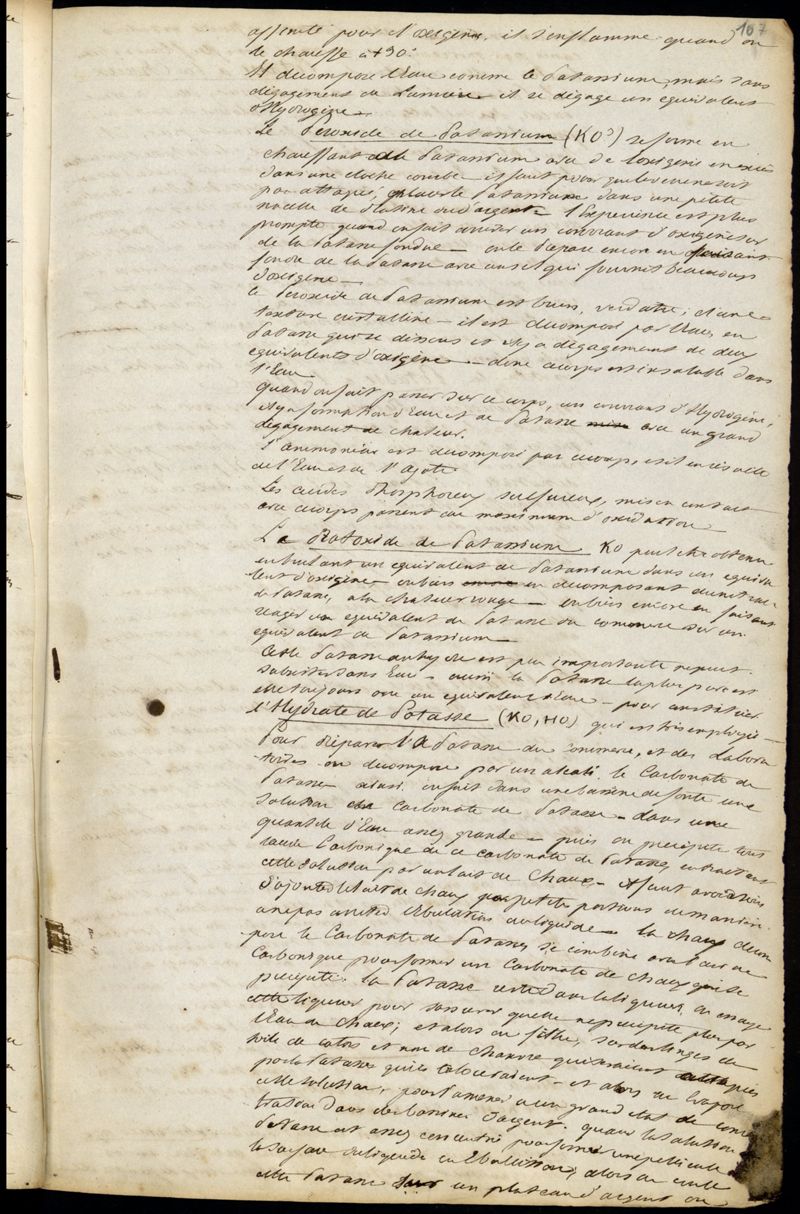 107
affinité pour l'oxigène, il s'enflamme quand on
le chauffe à +30°
Il décompose l'Eau comme le Potassium, mais sans
dégagement de Lumière il se dégage un equivalent
d'Hydrogène
Le Peroxide de Potassium (KO³) se forme en
chauffant du Potassium avec de l'oxigène en excès
dans une cloche courbe il faut pour que le verre ne soit
pas attaqué, placer le Potassium dans une petite
nacelle de Platine ou d'argent l'Expérience est plus
prompte quand on fait arriver un courant d'oxigène sur
de la Potasse fondue on le prépare encore en faisant
fondre de la Potasse avec un sel qui fournit beaucoup
d'oxigène
Ce Peroxide de Potassium est brun, verdatre, d'une
texture cristalline il est décomposé par l'Eau, en
Potasse qui se dissout et il y a dégagement de deux
equivalents d'oxigène donc ce corps est insoluble dans
l'Eau
quand on fait passer sur ce corps, un courant d'Hydrogène,
il y a formation d'Eau et de Potasse avec un grand
dégagement de chaleur.
L'ammoniac est décomposé par ce corps, et il en résulte
de l'Eau et de l'Azote
Les acides Phosphoreux sulfureux, mis en contact
avec ce corps passent au maximum d'oxidation
Le Protoxide de Potassium KO peut être obtenu
en brulant un equivalent de Potassium dans un equiva-
lent d'oxigène ou bien en décomposant du nitrate
de Potasse, à la chaleur rouge ou bien encore en faisant
réagir un equivalent de Potasse du commerce sur un
equivalent de Potassium
Cette Potasse anhydre est peu importante
subsister sans Eau aussi la Potasse la plus pure est
elle toujours avec un equivalent d'Eau pour constituer
l'Hydrate de Potasse (KO, HO) qui est très employé
Pour préparer la Potasse du Commerce, et des Labora-
toires on décompose par un alcali le Carbonate de
Potasse ainsi on fait dans une bassine de fonte une
solution de Carbonate de Potasse dans une
quantité d'Eau assez grande puis on précipite tout
l'acide Carbonique de ce carbonate de Potasse, en traitant
cette solution par un lait de Chaux Il faut avoir soin
d'ajouter le lait de chaux par petites portions de manière
à ne pas arrêter l'ébulition du liquide la chaux décom-
pose le Carbonate de Potasse, se combine avec l'acide
Carbonique pour former un Carbonate de chaux qui se
précipite. la Potasse reste dans la liqueur, on essaye
cette liqueur pour s'assurer qu'elle ne précipite plus par
l'Eau de Chaux; et alors on filtre, sur des linges de
toile de coton et non de chanvre qui seraient attaqués
par la Potasse qui les et alors on Evapore
cette solution, pour l'amener à un grand état de concen-
tration dans des bassines d'argent. quand la solution de
Potasse est assez concentrée pour former une pellicule à
la surface du liquide en Ebullition, alors on coule
cette Potasse sur un plateau d'argent ou